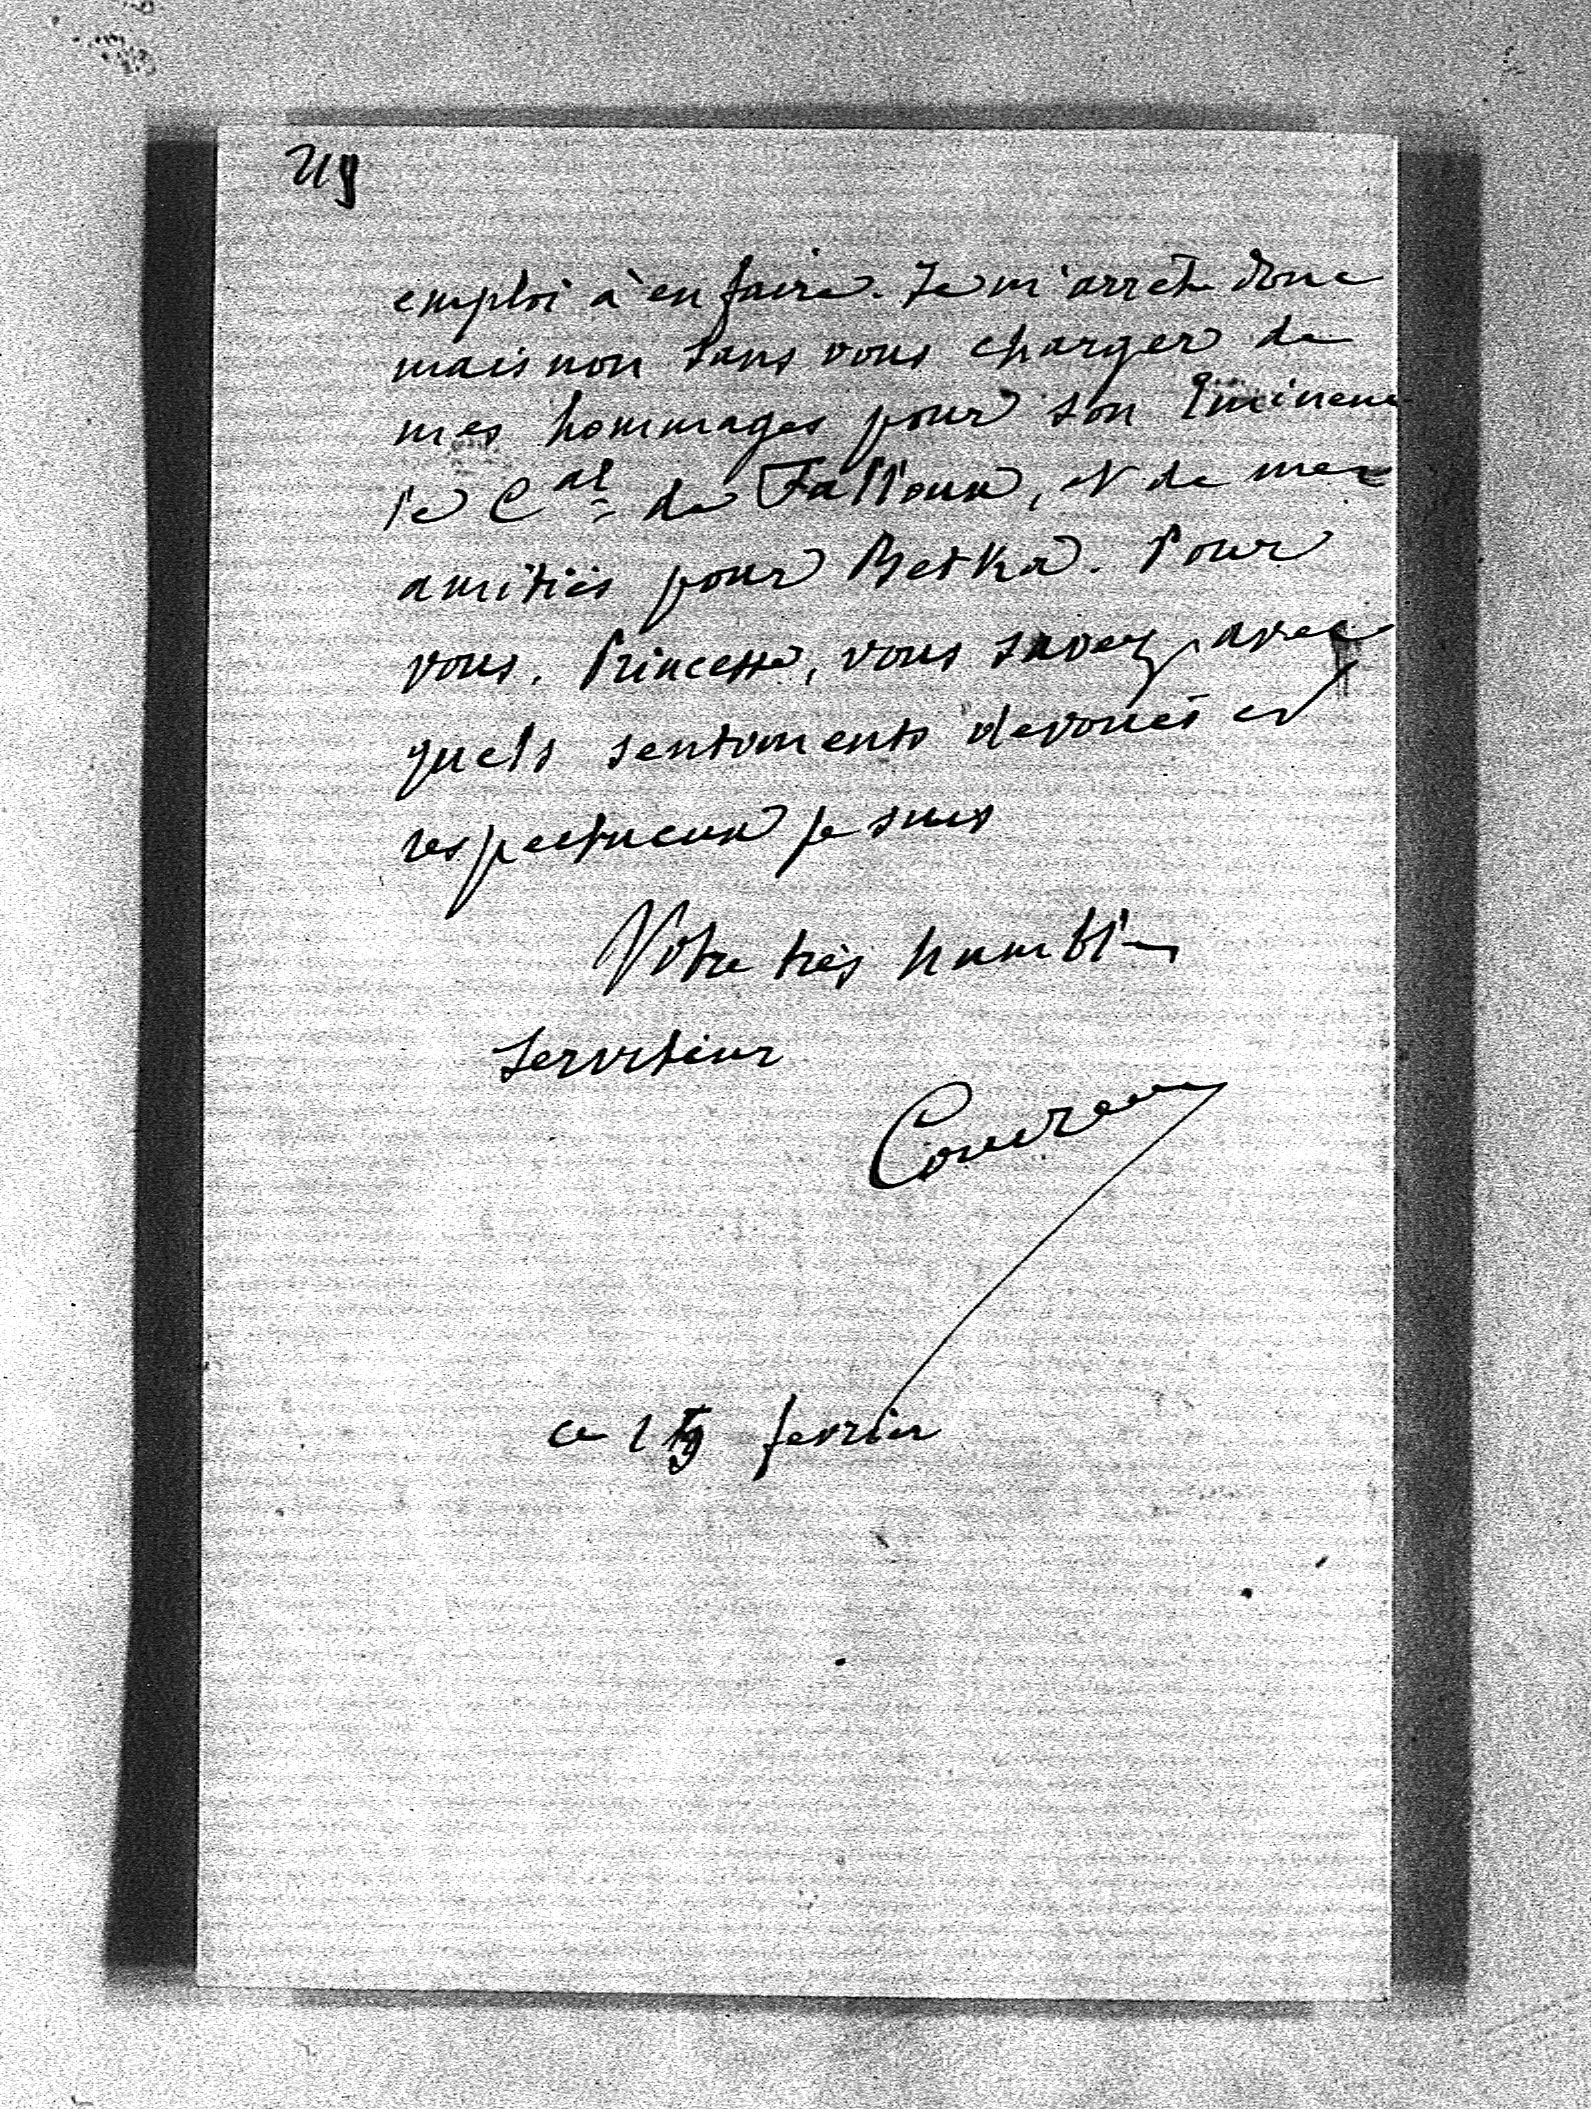 219
emploi à en faire. Je m'arrête donc
mais non sans vous charger de
mes hommages pour son Eminence
le C<sup>al</sup> de Falloux, et de mes
amitiés pour Betka. Pour
vous, Princesse, vous savez avec
quels sentiments devoués et
respectueux je suis
Votre très humble
serviteur
ce fevrier